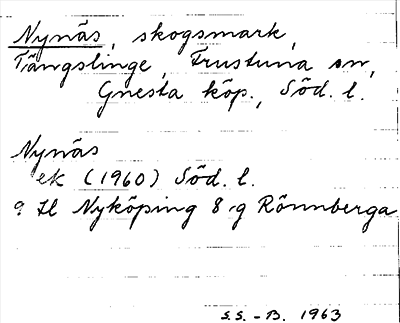 Nynäs, skogsmark,
Tängslinge, Frustuna sn,
Gnesta köp., Söd. l.
Nynäs
ek (1960) Söd. l.
9 H Nyköping 8 g Rönnberga
S.S. - B. 1963